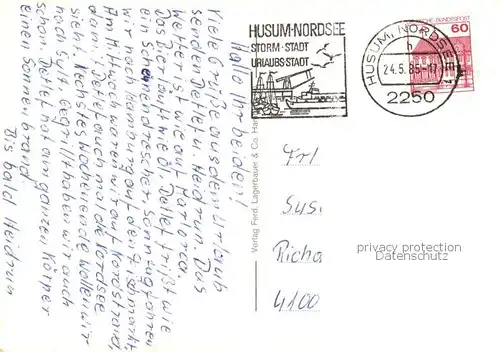 Hallo Ihr beiden!
Viele Grüße aus dem Urlaub
senden Detlef u. Heidrun. Das
Wetter ist wie auf Mallorca.
Das Bier läuft wie Öl. Detlef frißt wie
ein Scheunendrescher. Sonntag fahren
wir nach Hamburg auf den Fischmarkt
Am Mittwoch waren wir auf Nordstrand,
dam. Detlef auch mal die Nordsee
sieht. Nächstes Wochenende wollen wir
nach Sylt. Gegrillt haben wir auch
schon. Detlef hat am ganzen Körper
einen Sonnenbrand.
Bis bald Heidrun
Verlag Ferd. Lagerbauer & Co. Ham
HUSUM·NORDSEE
STORM·STADT
URLAUBSSTADT
HUSUM, NORDSEE
24.5.85-17
2250
DEUTSCHE BUNDESPOST
60
Frl
Sus.
Richa
4100
privacy protection
Datenschutz